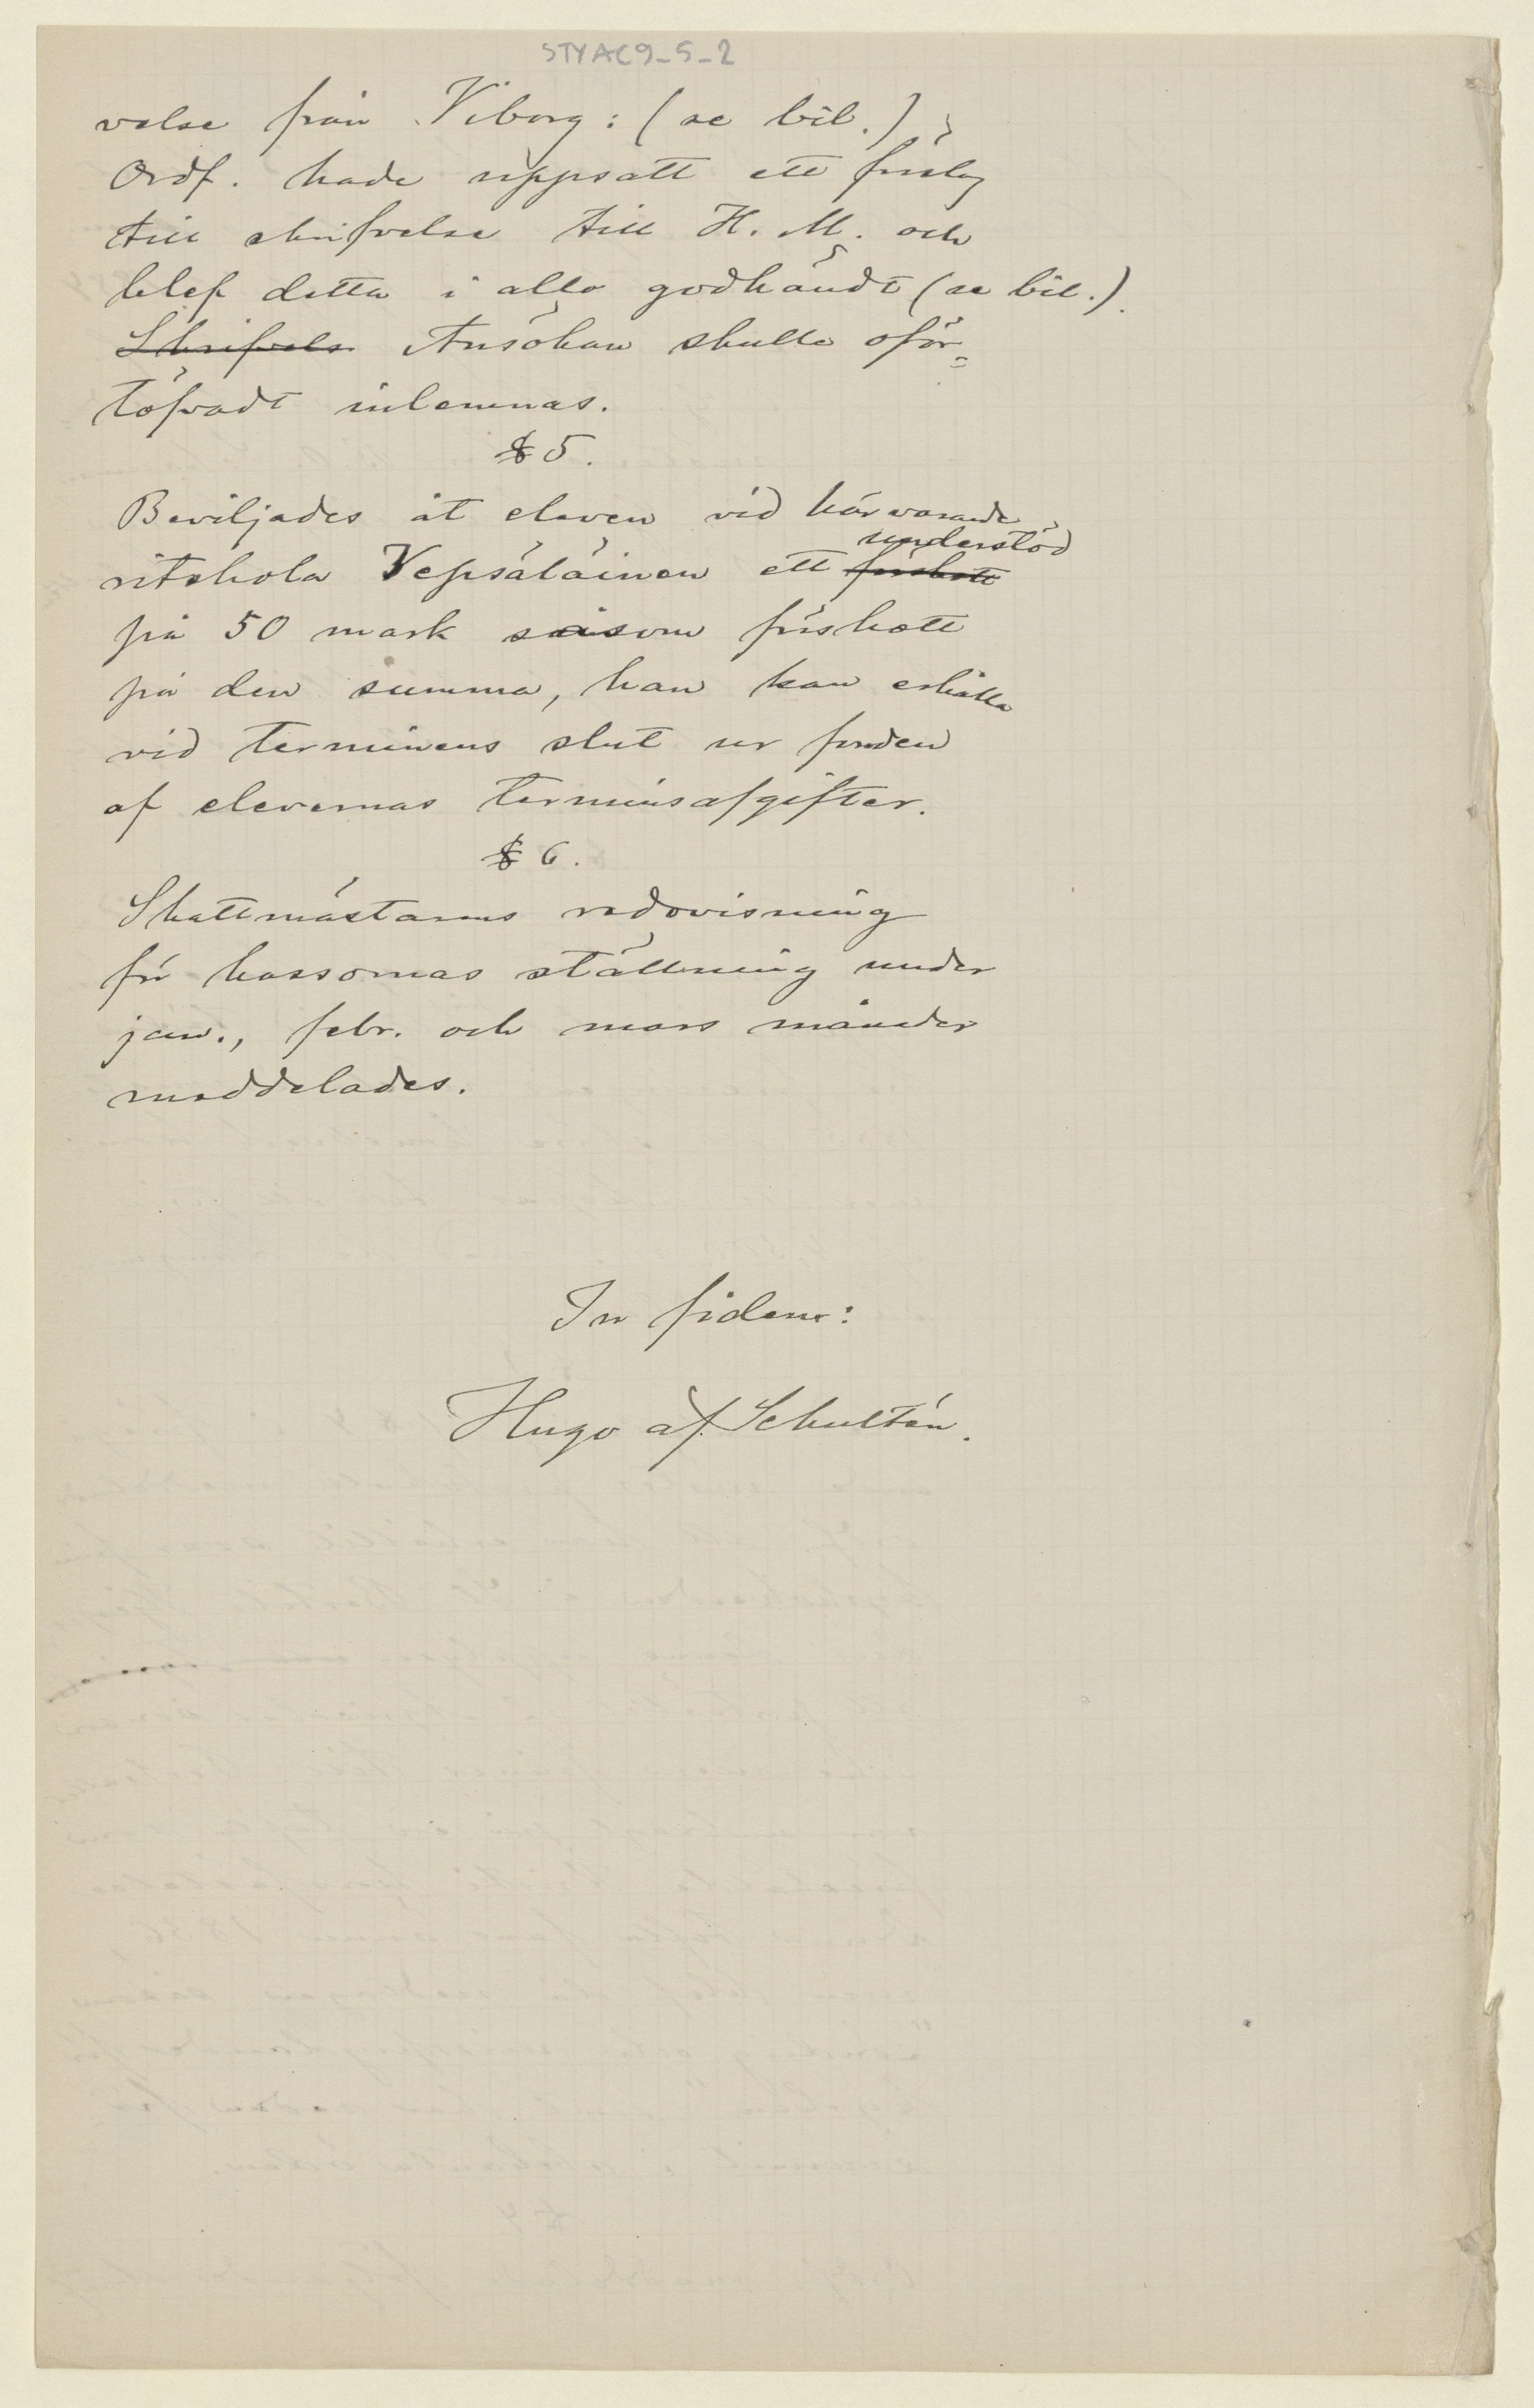 STYAC9_5_2
velse från Viborg: (se bil.)
Ordf. hade uppsatt ett förslag
till skrifvelse till H. M. och
blef detta i allo godkändt (se bil.).
Skrifvels Ansökan skulle oför=
töfvadt inlemnas.
§ 5.
Beviljades åt eleven vid härvarande
understöd
ritskola Vepsäläinen ett förskott
på 50 mark såsom förskott
på den summa, han kan erhålla
vid terminens slut ur fonden
af elevernas terminsafgifter.
§ 6.
Skattmästarens redovisning
för kassornas ställning under
jan., febr. och mars månader
meddelades.
In fidem:
Hugo af Schultén.